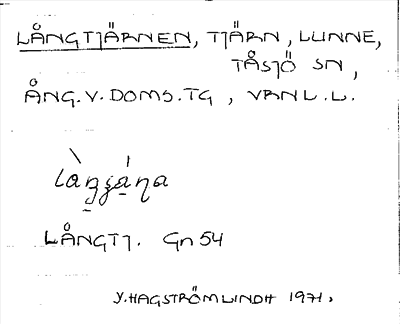 LÅNGTJÄRNEN, TJÄRN, LUNNE,
TÅSJÖ SN,
ÅNG.V.DOMS.TG, VRNL.L.
LÅNGTJ. Gn 54
Y.HAGSTRÖMLINDH 1971.